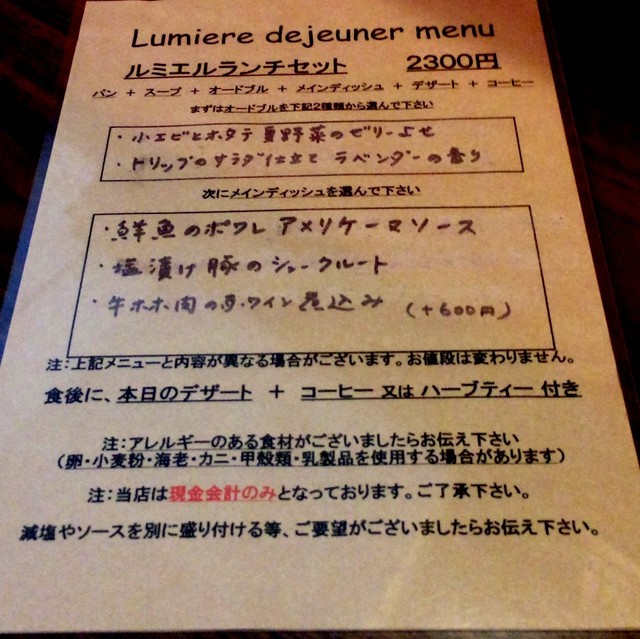 Lumiere dejeuner menu
ルミエルランチセット 2300円
パン + スープ + オードブル + メインディッシュ + デザート + コーヒー
まずはオードブルを下記2種類から選んで下さい
・小エビとホタテ 夏野菜のゼリーよせ
・トリップのサラダ仕立て ラベンダーの香り
次にメインディッシュを選んで下さい
・鮮魚のポワレ アメリケーヌソース
・塩漬け豚のシュークルート
・牛ホホ肉の赤ワイン煮込み (+600円)
注:上記メニューと内容が異なる場合がございます。お値段は変わりません。
食後に、本日のデザート + コーヒー 又は ハーブティー 付き
注:アレルギーのある食材がございましたらお伝え下さい
(卵・小麦粉・海老・カニ・甲殻類・乳製品を使用する場合があります)
注:当店は現金会計のみとなっております。ご了承下さい。
減塩やソースを別に盛り付ける等、ご要望がございましたらお伝え下さい。